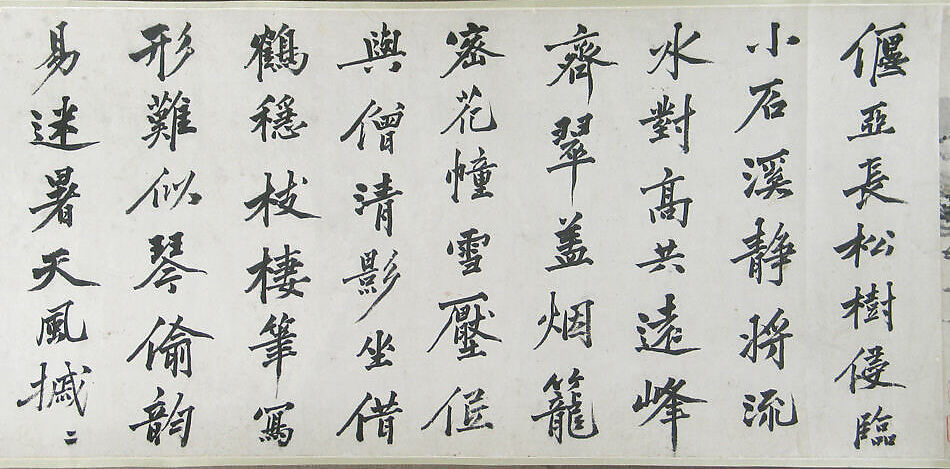 偃亞長松樹侵臨
小石溪靜將流
水對高共遠峰
齊翠蓋烟籠
密花幢雪壓低
與僧清影坐借
鶴穩枝棲筆寫
形難似琴偷韵
易迷暑天風撼二